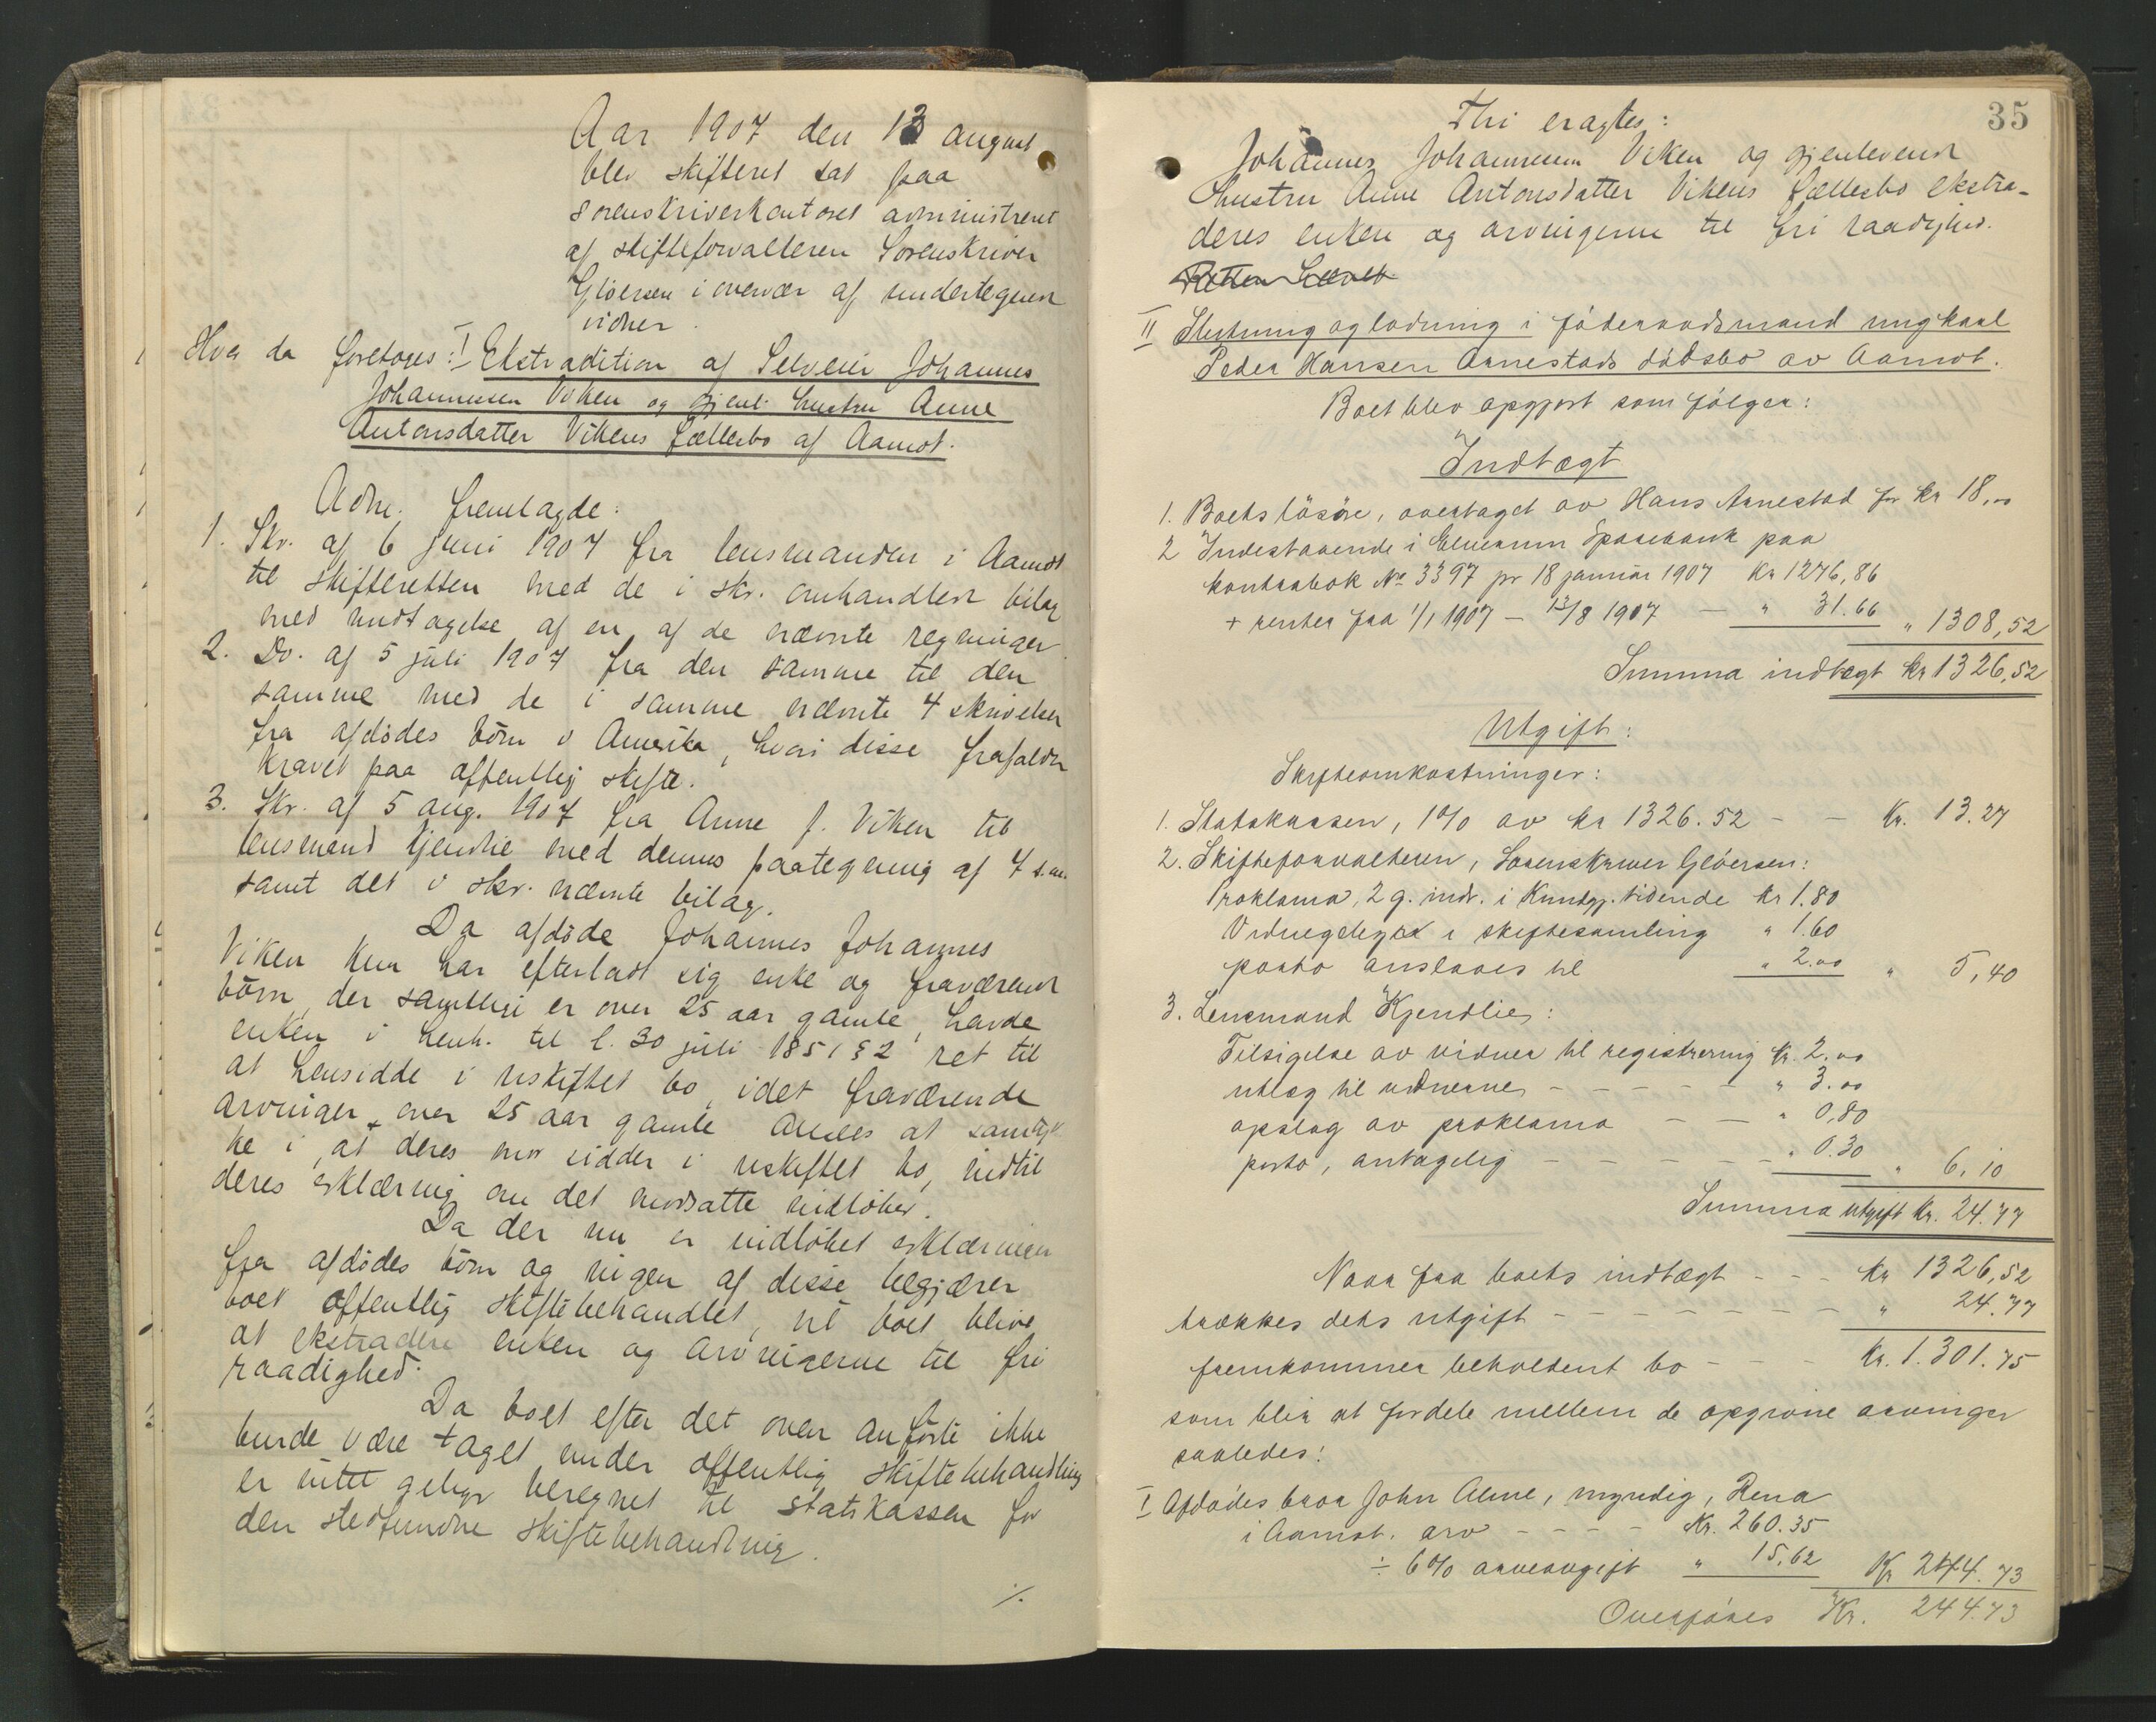 Aar 1907 den 13 august
blev skifteret sat paa
sorenskriverkontoret administreret
af skifteforvalteren Sorenskriver
Gløersen i overvær af undertegnede
vidner.
Hvor da foretoges: I Ekstradition af Selveier Johannes
Johannessen Viken og gjenl. hustru Anne
Antonsdatter Vikens fællesbo af Aamot.
Adm. fremlagde:
1. Skr. af 6 juni 1907 fra lensmanden i Aamot
til skifteretten med de i skr. omhandlede bilag
med undtagelse af en af de nævnte regninger.
2. Do. af 5 juli 1907 fra den samme til den
samme med de i samme nævnte 4 skrivelser
fra afdødes børn i Amerika, hvori disse frafalder
kravet paa offentlig skifte.
3. Skr. af 5 aug. 1907 fra Anne J. Viken til
lensmand Kjendlie med dennes paategning af 7 s.m.
samt det i skr. nævnte bilag.
Da afdøde Johannes Johannes
Viken kun har efterladt sig enke og fraværende
børn, der samtlige er over 25 aar gamle, havde
enken i henh. til l. 30 juli 1851 § 2 ret til
at hensidde i uskiftet bo, idet fraværende
arvinger over 25 aar gamle ansees at samtyk
ke i, at deres mor sidder i uskiftet bo, indtil
deres erklæring om det modsatte indløber.
Da der nu er indløbet erklæringer
fra afdødes børn og ingen af disse begjærer
boet offentlig skiftebehandlet, vil boet blive
at ekstradere enken og arvingerne til fri
raadighed.
Da boet efter det oven anførte ikke
burde være taget under offentlig skiftebehandling
er intet gebyr beregnet til statskassen for
den stedfundne skiftebehandling.
./.
35
Thi eragtes:
Johannes Johannessen Viken og gjenlevende
hustru Anne Antonsdatter Vikens fællesbo ekstra-
deres enken og arvingerne til fri raadighed.
Retten hævet
II Slutning og lodning i føderaadsmand ungkarl
Peder Hansen Arnestads dødsbo av Aamot.
Boet blev opgjort som følger:
Indtægt
1. Boets løsøre, overtaget av Hans Arnestad for kr 18,00
2 Indestaaende i Elverum Sparebank paa
kontrabok № 3397 pr 18 januar 1907 kr 1276,86
+ renter fra 1/1 1907 – 13/8 1907 — " 31.66 " 1308,52
Summa indtægt kr 1326,52
Utgift:
Skifteomkostninger:
1. Statskassen, 1% av kr 1326.52 – – Kr. 13.27
2. Skifteforvalteren, Sorenskriver Gløersen:
Proklama, 2 g. indr. i Kundgj. tidende kr 1.80
Vidnegebyr i skiftesamling " 1.60
porto anslaaes til " 2.00 " 5,40
3. Lensmand Kjendlie:
Tilsigelse av vidner til registrering kr. 2.00
utlæg til vidnerne – – – – – " 3.00
opslag av proklama – – " 0,80
porto, antagelig – – – – – " 0.30 " 6,10
Summa utgift kr. 24.77
Naar fra boets indtægt – – – kr 1326,52
trækkes dets utgift – – – – – – – " 24.77
fremkommer beholdent bo – – – kr. 1.301.75
som blir at fordele mellem de opgivne arvinger
saaledes:
I Afdødes bror John Alme, myndig, Rena
i Aamot. arv – – – – Kr. 260.35
÷ 6% arveavgift " 15,62 Kr 244.73
Overføres Kr. 244.73